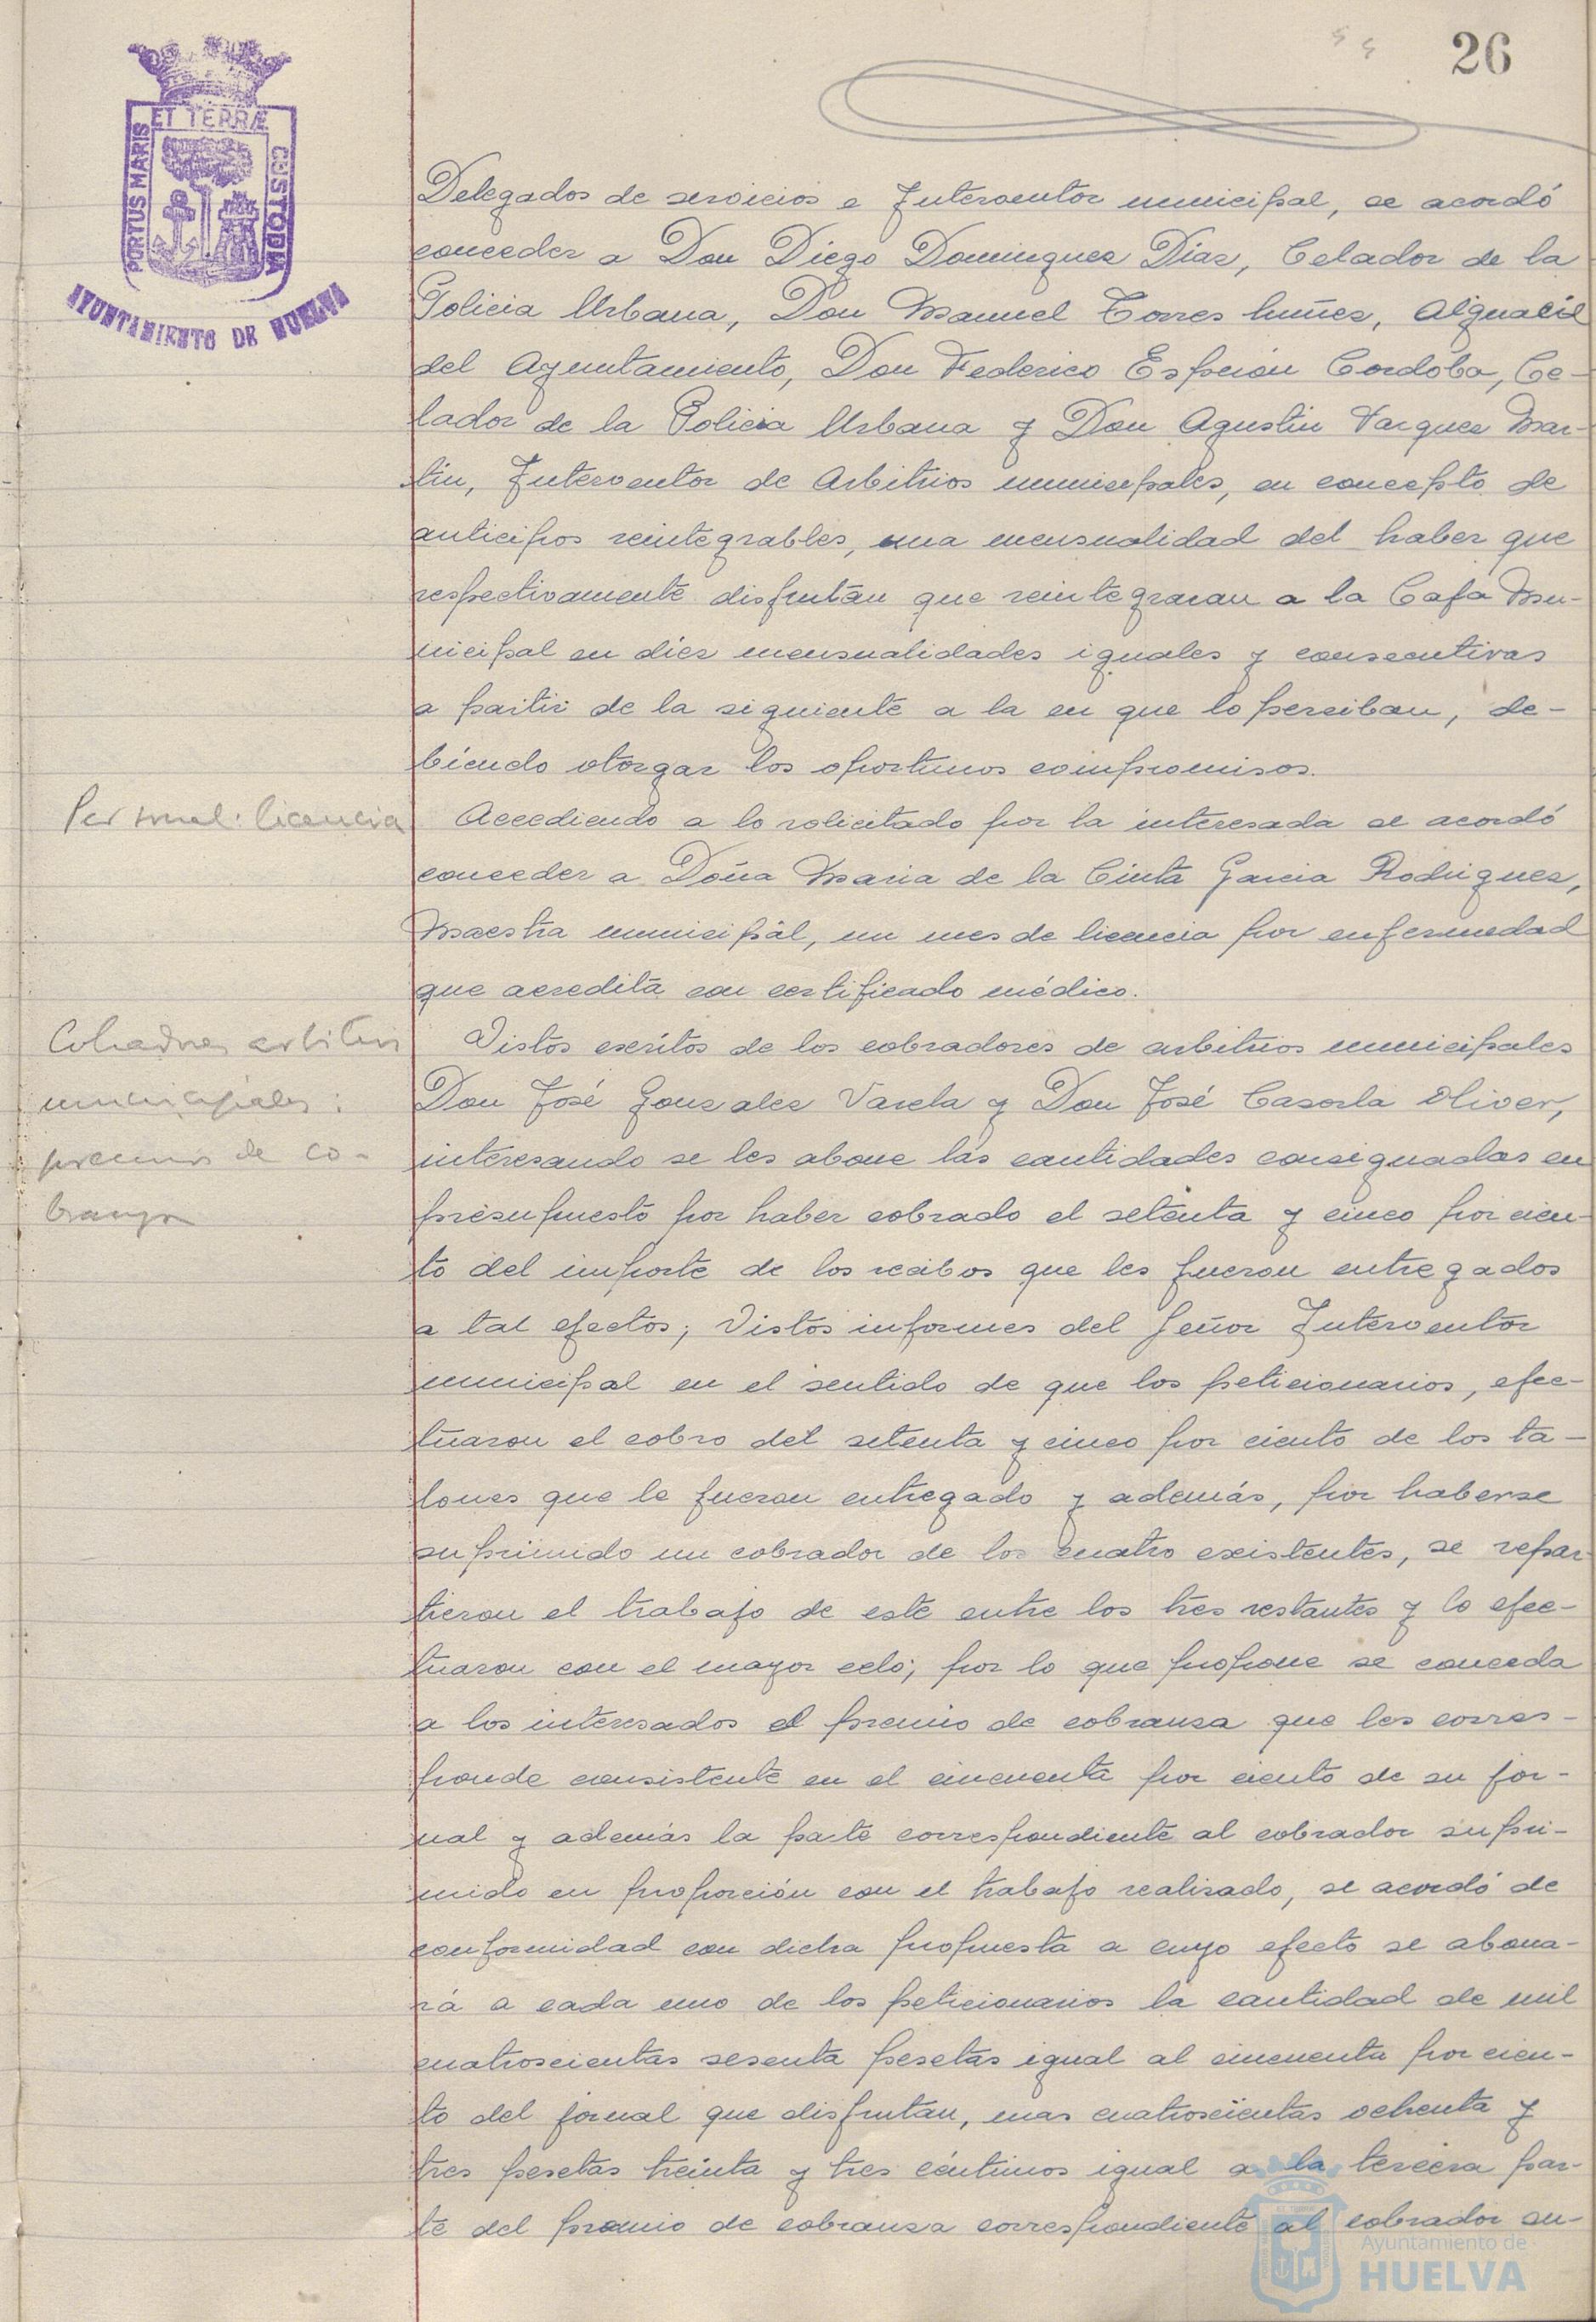 26
ET TERRÆ
PORTUS MARIS
CUSTODIA
AYUNTAMIENTO DE HUELVA
Delegados de servicios e Interventor municipal, se acordó
conceder a Don Diego Dominguez Diaz, Celador de la
Policia Urbana, Don Manuel Torres Nuñez, Alguacil
del Ayuntamiento, Don Federico Espeión Cordóba, Ce-
lador de la Policia Urbana y Don Agustin Vazquez Mar-
tin, Interventor de Arbitrios municipales, en concepto de
anticipos reintegrables, una mensualidad del haber que
respectivamente disfrutan que reintegraran a la Caja Mu-
nicipal en diez mensualidades iguales y consecutivas
a partir de la siguiente a la en que lo perciban, de-
biendo otorgar los oportunos compromisos.
Personal: licencia
Accediendo a lo solicitado por la interesada se acordó
conceder a Doña Maria de la Cinta Garcia Rodriguez,
Maestra municipal, un mes de licencia por enfermedad
que acredita con certificado médico.
Cobradores arbitrios
municipales:
premios de co-
branza
Vistos escritos de los cobradores de arbitrios municipales
Don José Gonzalez Varela y Don José Casorla Oliver,
interesando se les abone las cantidades consignadas en
presupuesto por haber cobrado el setenta y cinco por cien-
to del importe de los recibos que les fueron entregados
a tal efectos; Vistos informes del Señor Interventor
municipal en el sentido de que los peticionarios, efec-
tuaron el cobro del setenta y cinco por ciento de los ta-
lones que le fueron entregado y además, por haberse
suprimido un cobrador de los cuatro existentes, se repar
tieron el trabajo de este entre los tres restantes y lo efec-
tuaron con el mayor celo; por lo que propone se conceda
a los interesados el premio de cobranza que les corres-
ponde consistente en el cincuenta por ciento de su jor-
nal y además la parte correspondiente al cobrador supri-
mido en proporción con el trabajo realizado, se acordó de
conformidad con dicha propuesta a cuyo efecto se abona-
rá a cada uno de los peticionarios la cantidad de mil
cuatroscientas sesenta pesetas igual al cincuenta por cien-
to del jornal que disfrutan, mas cuatroscientas ochenta y
tres pesetas treinta y tres céntimos igual a la tercera par-
te del premio de cobranza correspondiente al cobrador su-
Ayuntamiento de
HUELVA